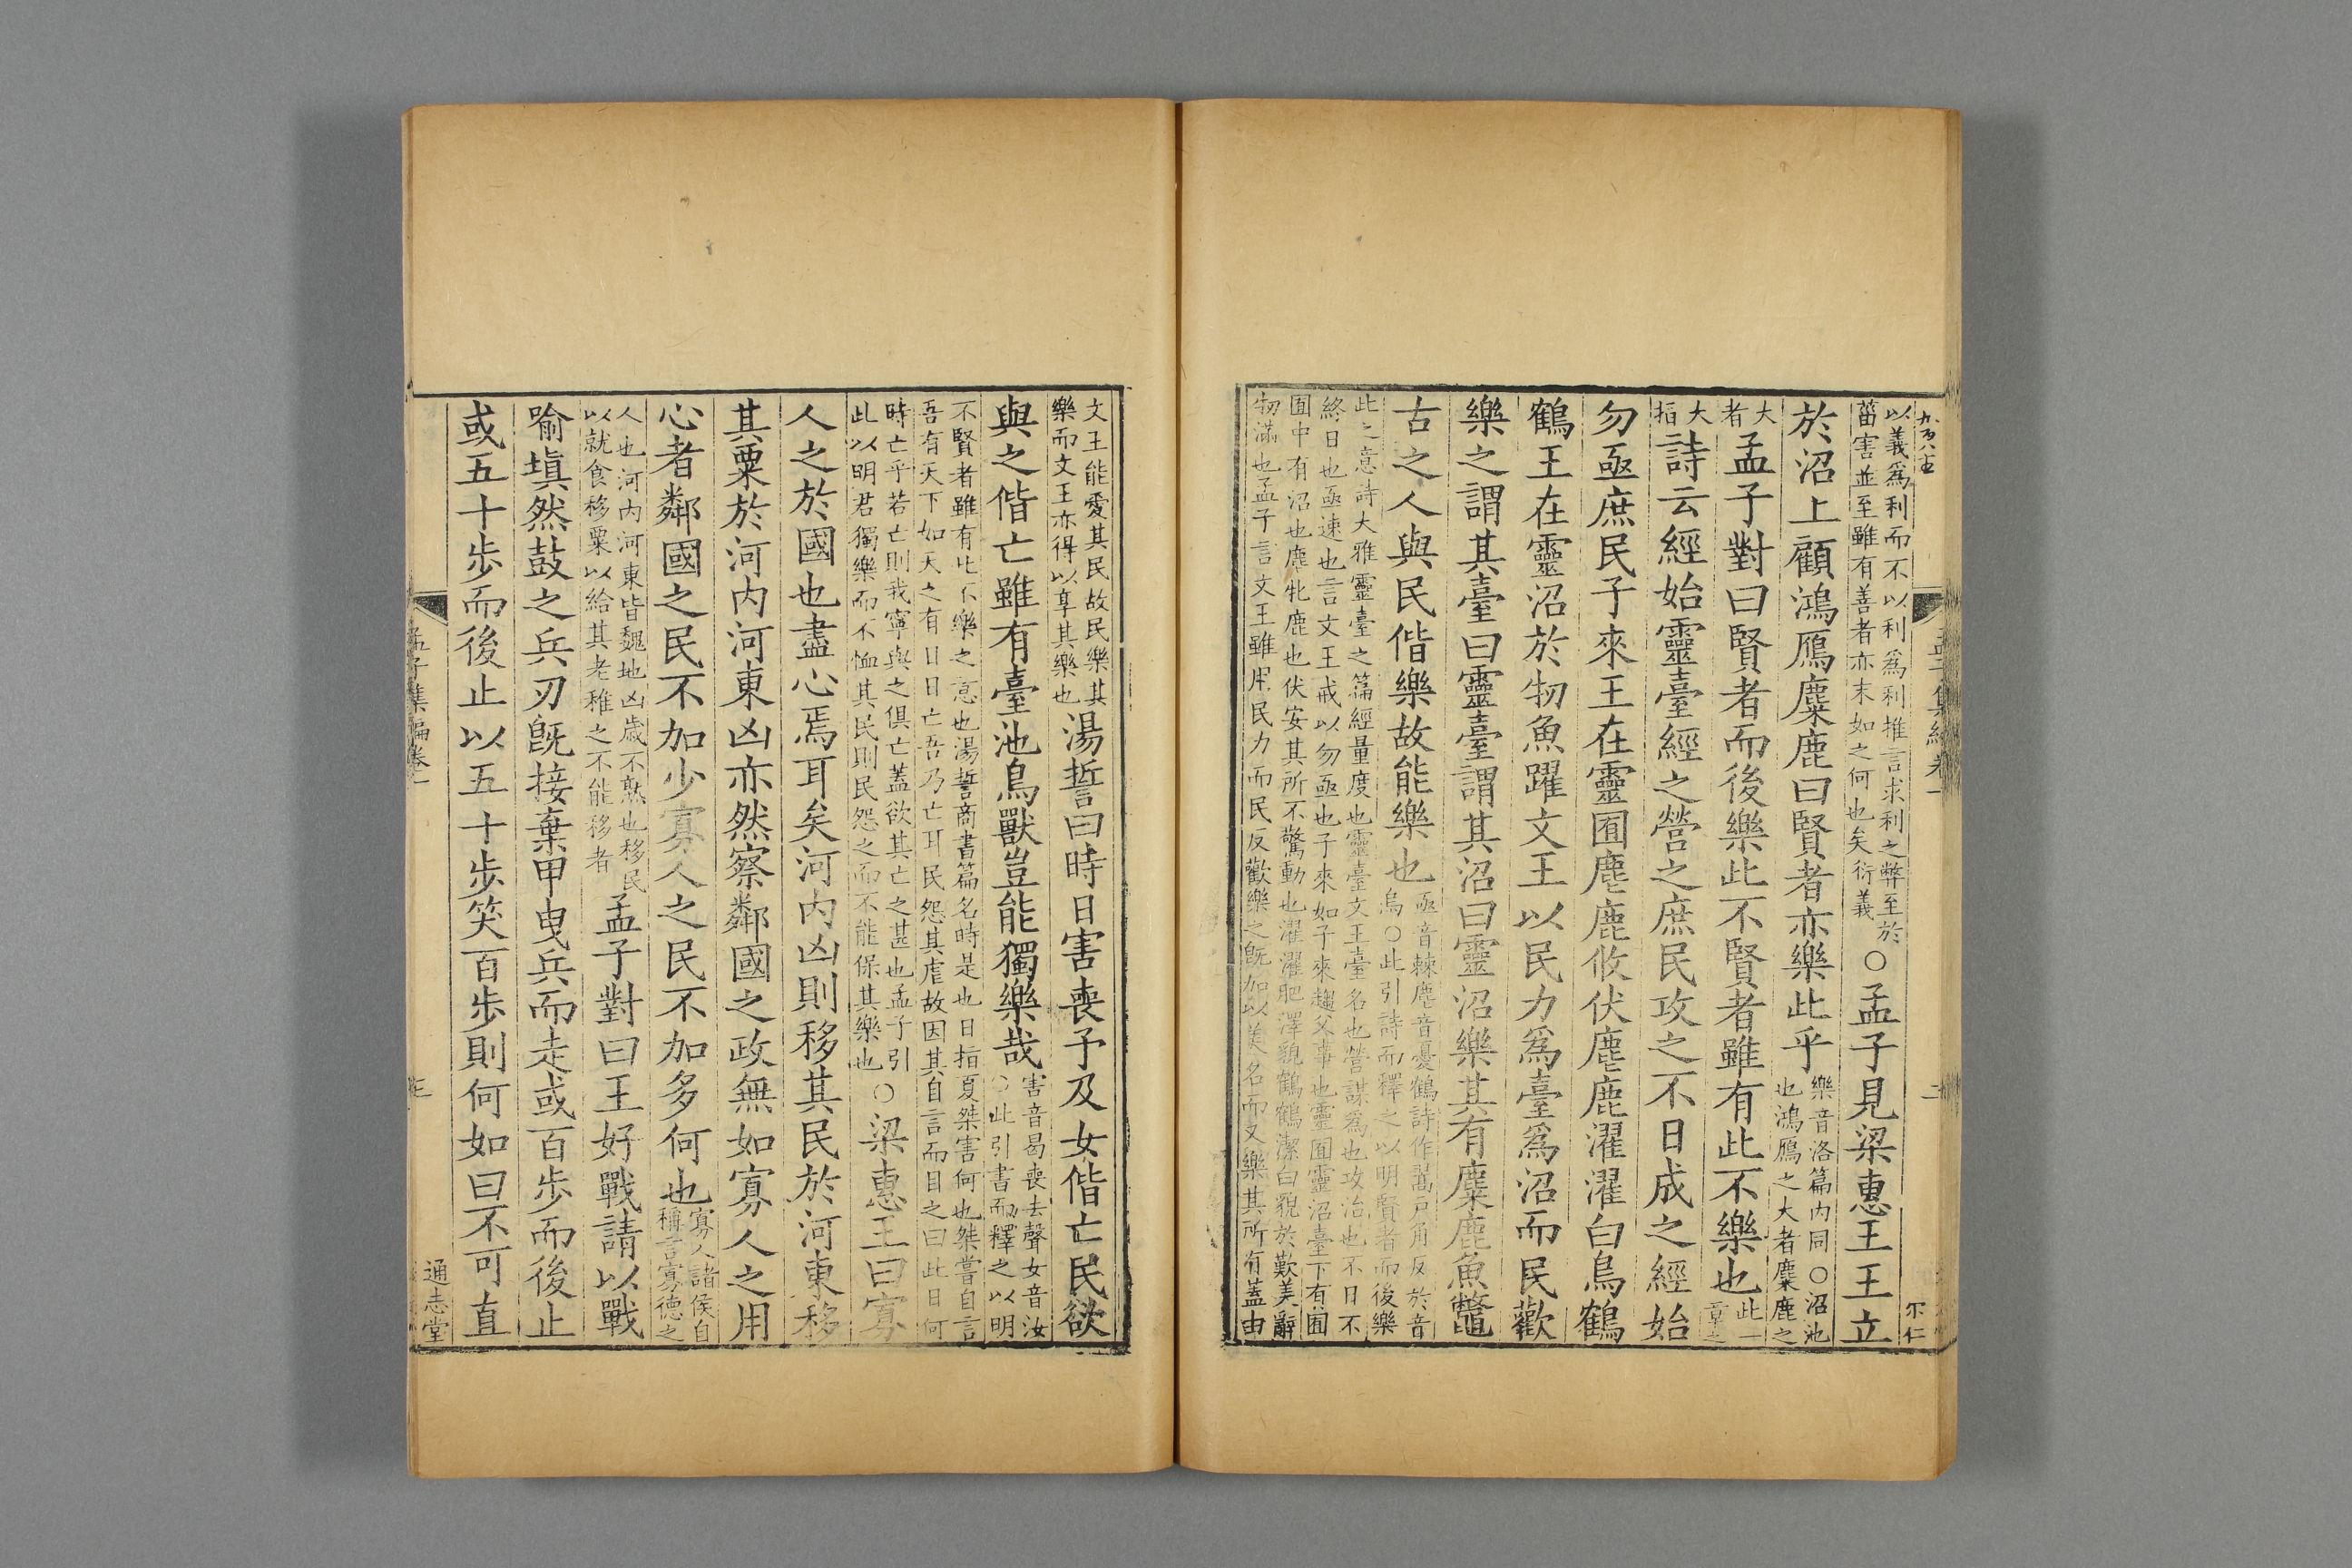 以義爲利而不以利爲利推言求利之弊至於
菑害並至雖有善者亦末如之何也矣衍義
○孟子見梁惠王王立
於沼上顧鴻鴈麋鹿曰賢者亦樂此乎
樂音洛篇内同○沼池
也鴻鴈之大者麋鹿之
大
者
孟子對曰賢者而後樂此不賢者雖有此不樂也
此一
章之
大
指
詩云經始靈臺經之營之庶民攻之不日成之經始
勿亟庶民子來王在靈囿麀鹿攸伏麀鹿濯濯白鳥鶴
鶴王在靈沼於牣魚躍文王以民力爲臺爲沼而民歡
樂之謂其臺曰靈臺謂其沼曰靈沼樂其有麋鹿魚鼈
古之人與民偕樂故能樂也
亟音棘麀音憂鶴詩作翯戶角反於音
烏○此引詩而釋之以明賢者而後樂
此之意詩大雅靈臺之篇經量度也靈臺文王臺名也營謀爲也攻治也不日不
終日也亟速也言文王戒以勿亟也子來如子來趨父事也靈囿靈沼臺下有囿
囿中有沼也麀牝鹿也伏安其所不驚動也濯濯肥澤貌鶴鶴潔白貌於歎美辭
牣滿也孟子言文王雖用民力而民反歡樂之旣加以美名而又樂其所有蓋由
文王能愛其民故民樂其
樂而文王亦得以享其樂也
湯誓曰時日害喪予及女偕亡民欲
與之偕亡雖有臺池鳥獸豈能獨樂哉
害音曷喪去聲女音汝
○此引書而釋之以明
不賢者雖有此不樂之意也湯誓商書篇名時是也日指夏桀害何也桀嘗自言
吾有天下如天之有日日亡吾乃亡耳民怨其虐故因其自言而目之曰此日何
時亡乎若亡則我寧與之俱亡蓋欲其亡之甚也孟子引
此以明君獨樂而不恤其民則民怨之而不能保其樂也
○梁惠王曰寡
人之於國也盡心焉耳矣河内凶則移其民於河東移
其粟於河内河東凶亦然察鄰國之政無如寡人之用
心者鄰國之民不加少寡人之民不加多何也
寡人諸侯自
稱言寡德之
人也河内河東皆魏地凶歲不熟也移民
以就食移粟以給其老稚之不能移者
孟子對曰王好戰請以戰
喻塡然鼓之兵刃旣接棄甲曳兵而走或百步而後止
或五十步而後止以五十步笑百步則何如曰不可直
孟子集編卷一
通志堂